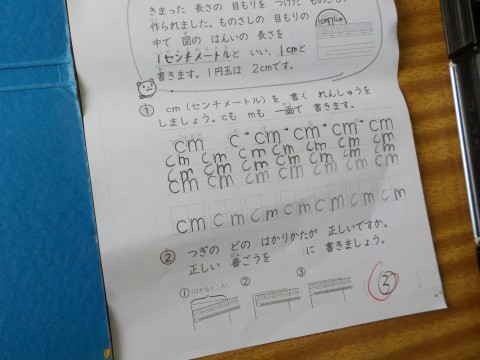 きまった 長さの 目もりを つけた ものさし
作られました。ものさしの 目もりの
中で 図の はんいの 長さを
1センチメートルと いい、1cmと
書きます。1円玉は 2cmです。
① cm(センチメートル)を 書く れんしゅうを
しましょう。cも mも 一画で 書きます。
cm c cm cm cm cm
cm cm cm cm cm cm cm
cm cm cm cm cm cm cm
cm cm cm cm cm cm cm
cm cm cm cm cm cm cm
② つぎの どの はかりかたが 正しいですか。
正しい 番ごうを に 書きましょう。
① ② ③
③